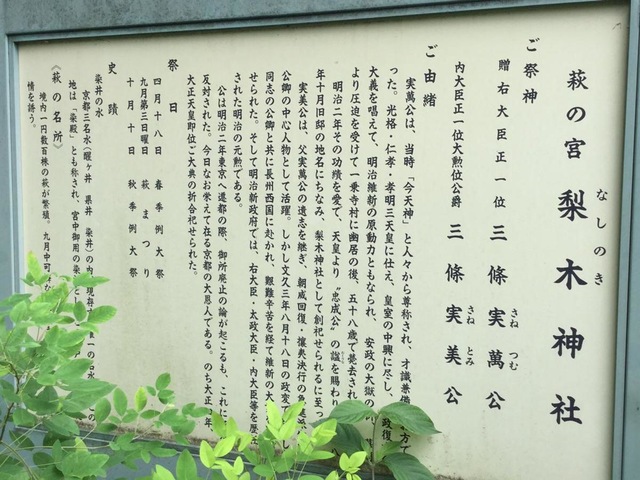 萩の宮 梨木神社
なしのき
ご祭神
贈右大臣正一位 三條実萬公
さね つむ
内大臣正一位大勲位公爵 三條実美公
さね とみ
ご由緒
実萬公は、当時「今天神」と人々から尊称され、才識兼備
った。光格・仁孝・孝明三天皇に仕え、皇室の中興に尽し、
大義を唱えて、明治維新の原動力ともなられ、安政の大獄の
より圧迫を受けて一乗寺村に幽居の後、五十八歳で薨去され
明治二年その功績を愛で、天皇より〝忠成公〟の諡を賜わり
年十月旧邸の地名にちなみ、梨木神社として創祀せられるに至っ
実美公は、父実萬公の遺志を継ぎ、朝威回復・攘夷決行の急
公卿の中心人物として活躍。しかし文久三年八月十八日の政変で
同志の公卿と共に長州西国に赴かれ、艱難辛苦を経て維新の大
せられた。そして明治新政府では、右大臣・太政大臣・内大臣等を歴
された明治の元勲である。
公は明治二年東京へ遷都の際、御所廃止の論が起こるも、これに
反対された。今日なお栄えて在る京都の大恩人である。のち大正
大正天皇即位ご大典の折合祀せられた。
祭日
四月十八日 春季例大祭
九月第三日曜日 萩まつり
十月十日 秋季例大祭
史蹟
染井の水
京都三名水(醒ヶ井 県井 染井)の内、現存
地は「染殿」とも称され、宮中御用の染
《萩の名所》
境内一円数百株の萩が繁殖。九月中
情を誘う。